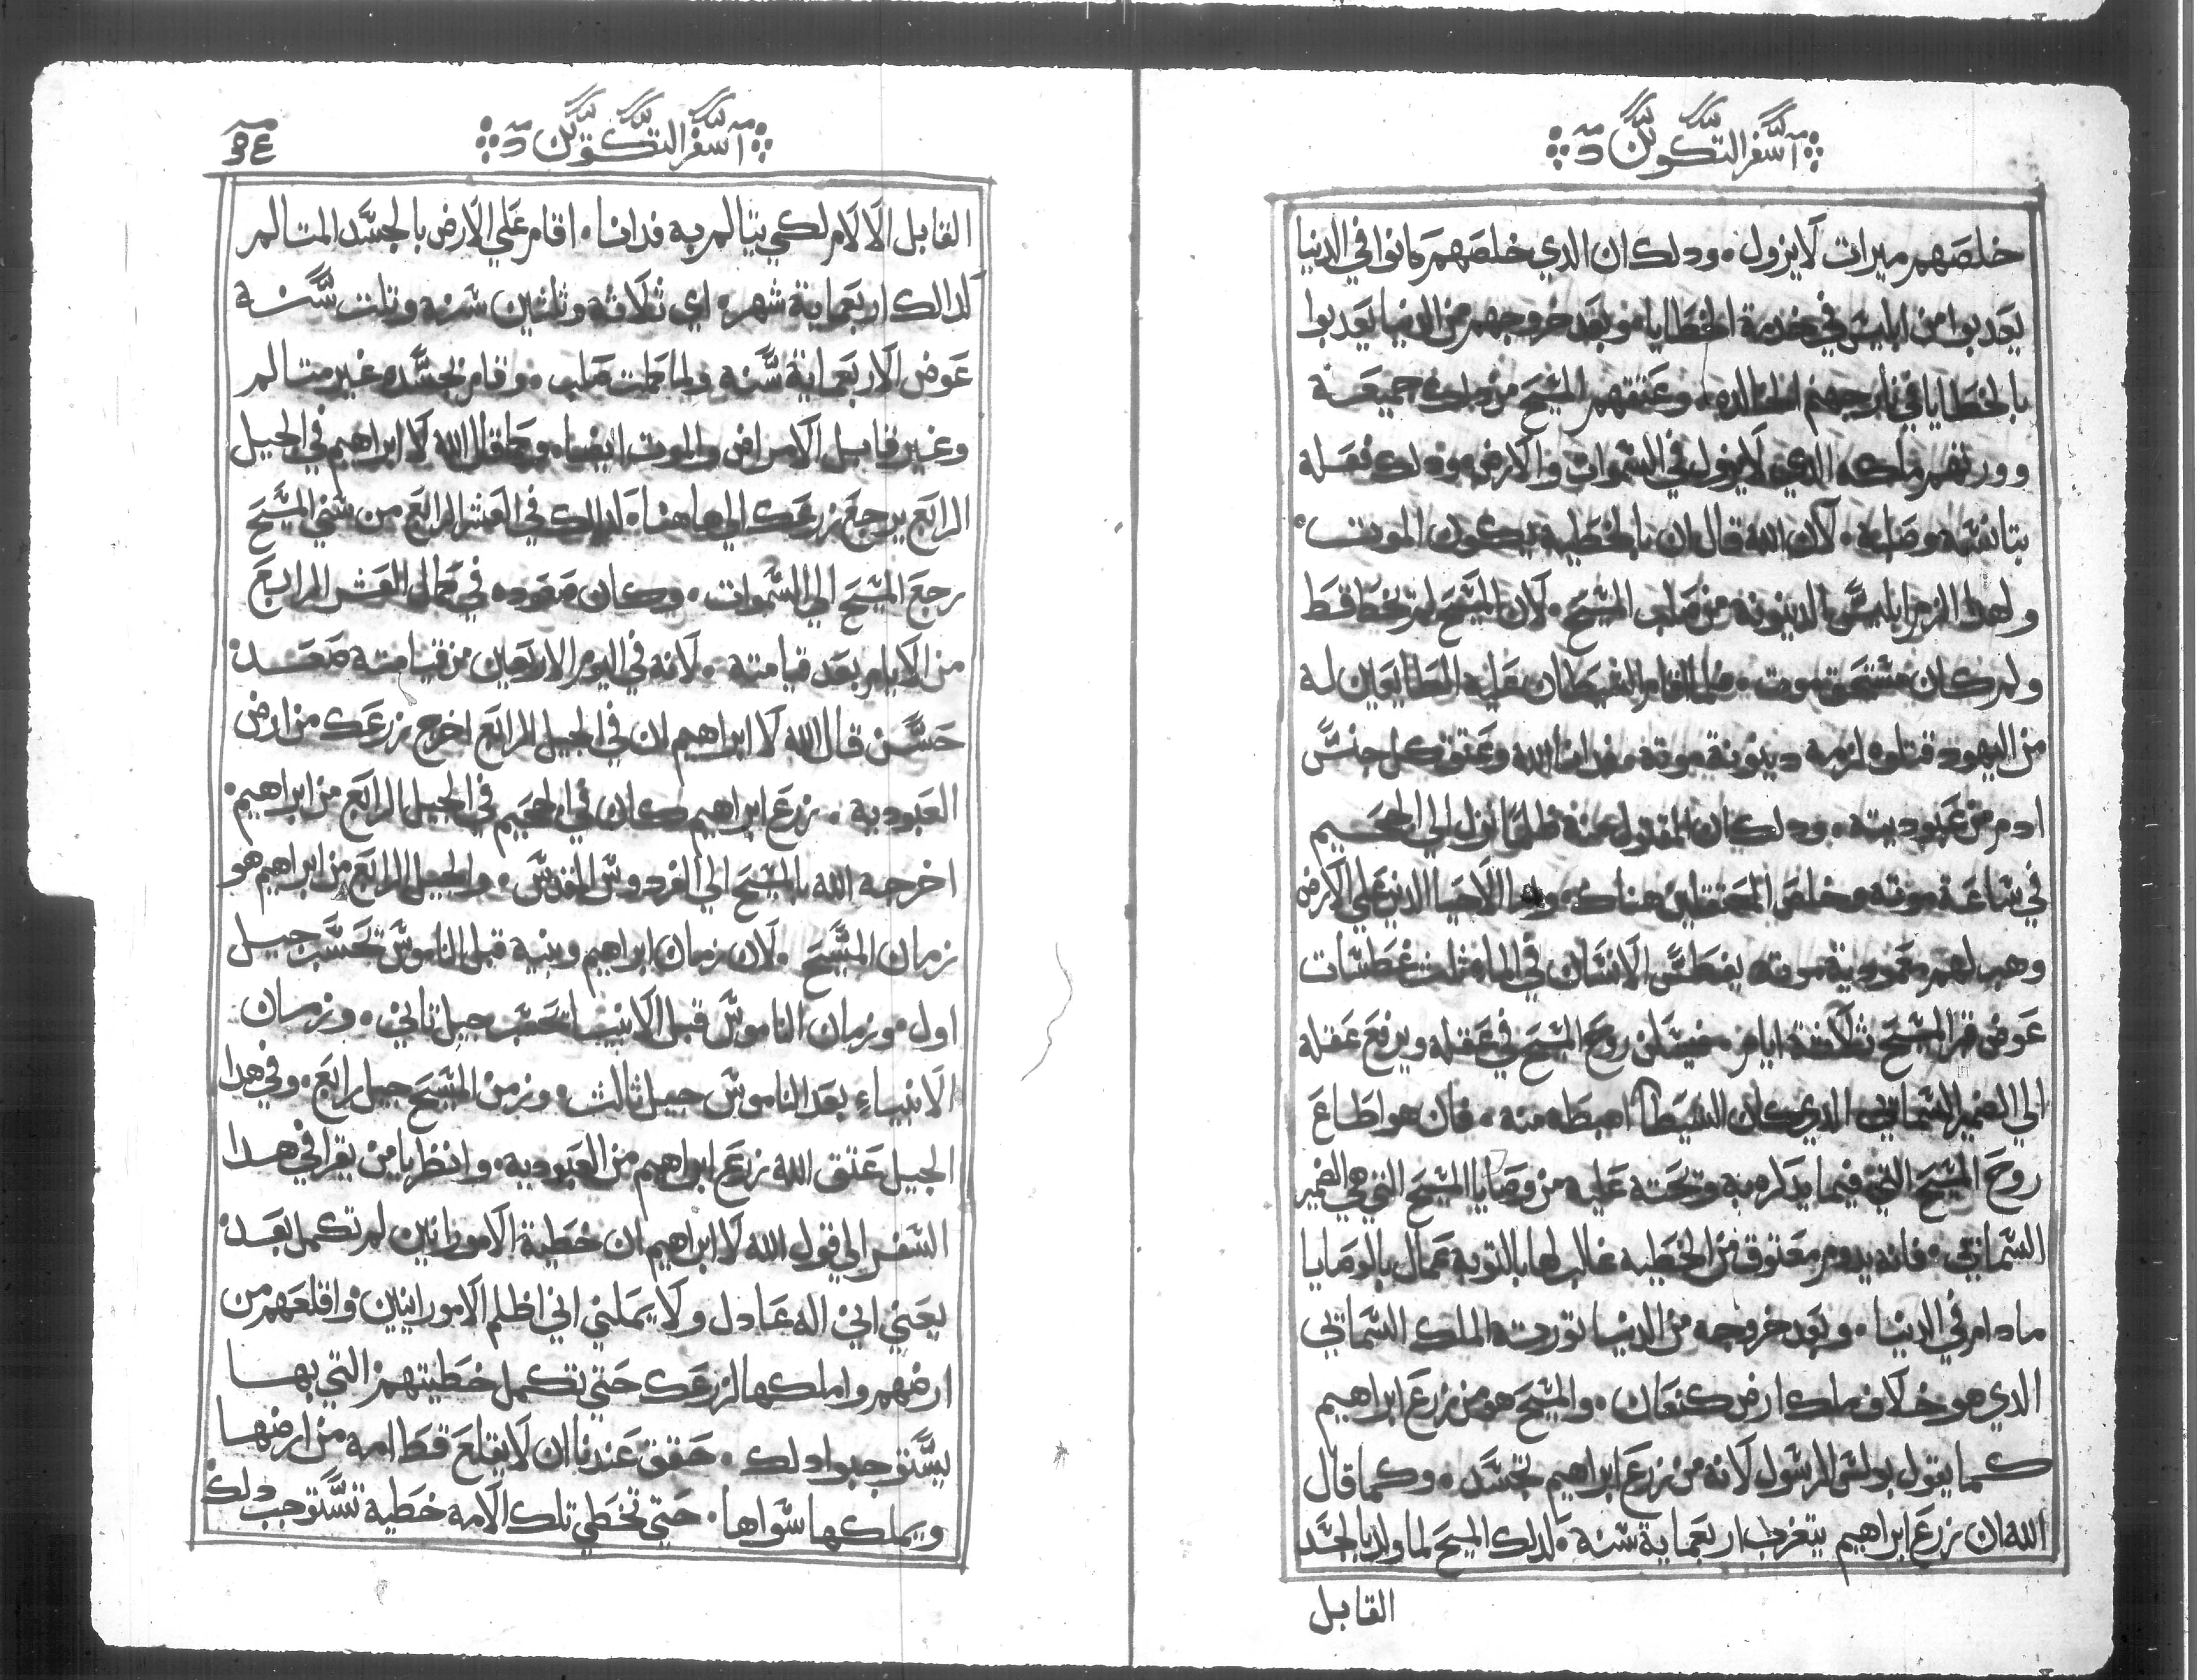 آ سفر التكوين د
خلصهم ميرات لايزول ٠ ودلك ان الدي خلصهم كانوا في الدنيا
يعدبوا من ابليس في خدمة الخطايا ٠ وبعد خروجهم من الدنيا يعدبوا
بالخطايا في نار جهنم الخالده ٠ وعتقهم المسيح من دلك جميعة
وورتهم ملكه الدي لايزول في السموات والارض ودلك فعله
بتانسه وصلبه ٠ لان الله قال ان بالخطيه يكون الموت ٠
ولهدا الزم ابليس الدينونه من صلب المسيح ٠ لان المسيح لم يخطا قط
ولم كان مستحق موت ٠ فلما اقام الشيطان عليه الطايعين له
من اليهود قتلوه لزمه دينونة موته ففدانا الله وعتق كل جنس
ادم من عبوديته ٠ ودلك ان المقتول عنه ظلما نزل الي الجحيم
في ساعة موته وخلص المعتقلين هناك ٠ واما الاحيا الدين علي الارض
وهب لهم معمودية موته يغطس الانسان في الماء ثلث غطسات
عوض قبر المسيح ثلاثة ايام ٠ فيسكن روح المسيح في عقله ويرفع عقله
الي الضمير السماني الدي كان الشيطان اهبطه منه ٠ فان هو اطاع
روح المسيح التي فيما يدكره به وتحته عليه من وصايا المسيح التي هي الضمير
السماني ٠ فانه يدوم معتوق من الخطيه غالب لها بالتوبه عمال بالوصايا
مادام في الدنيا ٠ وبعد خروجه من الدنيا تورته الملك السماني
الدي هو خلاف ملك ارض كنعان ٠ والمسيح هو من زرع ابراهيم
كما يقول بولس الرسول لانه من زرع ابراهيم تجسد ٠ وكما قال
الله ان زرع ابراهيم يتغرب اربعماية سنه ٠ لدلك المسيح لما ولد بالجسد
القابل
آ سفر التكوين د
٣٤
القابل الالام لكي يتالم به فدانا ٠ اقام علي الارض بالجسد المتالم
لدالك اربعماية شهر ٠ اي ثلاثه وثلثين سنه وثلت سنه
عوض الاربعماية سنه ولما كملت صلب ٠ وقام بجسده غير متالم
وغير قابل الامراض والموت ايضا ٠ وكما قال الله لا ابراهيم في الجيل
الرابع يرجع زرعك الي هاهنا ٠ لدلك في العشر الرابع من سني المسيح
رجع المسيح الي السموات ٠ وكان صعوده في كمال العشر الرابع
من الايام بعد قيامته ٠ لانه في اليوم الاربعين من قيامته صعد
حسن قال الله لا ابراهيم ان في الجيل الرابع اخرج زرعك من ارض
العبوديه ٠ زرع ابراهيم كان في الجحيم في الجيل الرابع من ابراهيم ٠
اخرجه الله بالمسيح الي الفردوس المقدس ٠ والجيل الرابع من ابراهيم هو
زمان المسيح ٠ لان زمان ابراهيم وبنيه قبل الناموس تحسب جيل
اول ٠ وزمان الناموس قبل الانبيا تحسب جيل تاني ٠ وزمان
الانبياء بعد الناموس جيل ثالث ٠ وزمن المسيح جيل رابع ٠ وفي هدا
الجيل عتق الله زرع ابراهيم من العبوديه ٠ وانظر يا من يقرا في هدا
السفر الي قول الله لا ابراهيم ان خطية الامورانين لم تكمل بعد
يعني اني اله عادل ولا يمكني اني اظلم الامورانيين واقلعهم من
ارضهم واملكها لزرعك حتي تكمل خطيتهم التي بها
يستوجبوا دلك ٠ حقق عندنا ان لا يقلع قط امه من ارضها
ويملكها سواها ٠ حتي تخطي تلك الامه خطية تستوجب دلك